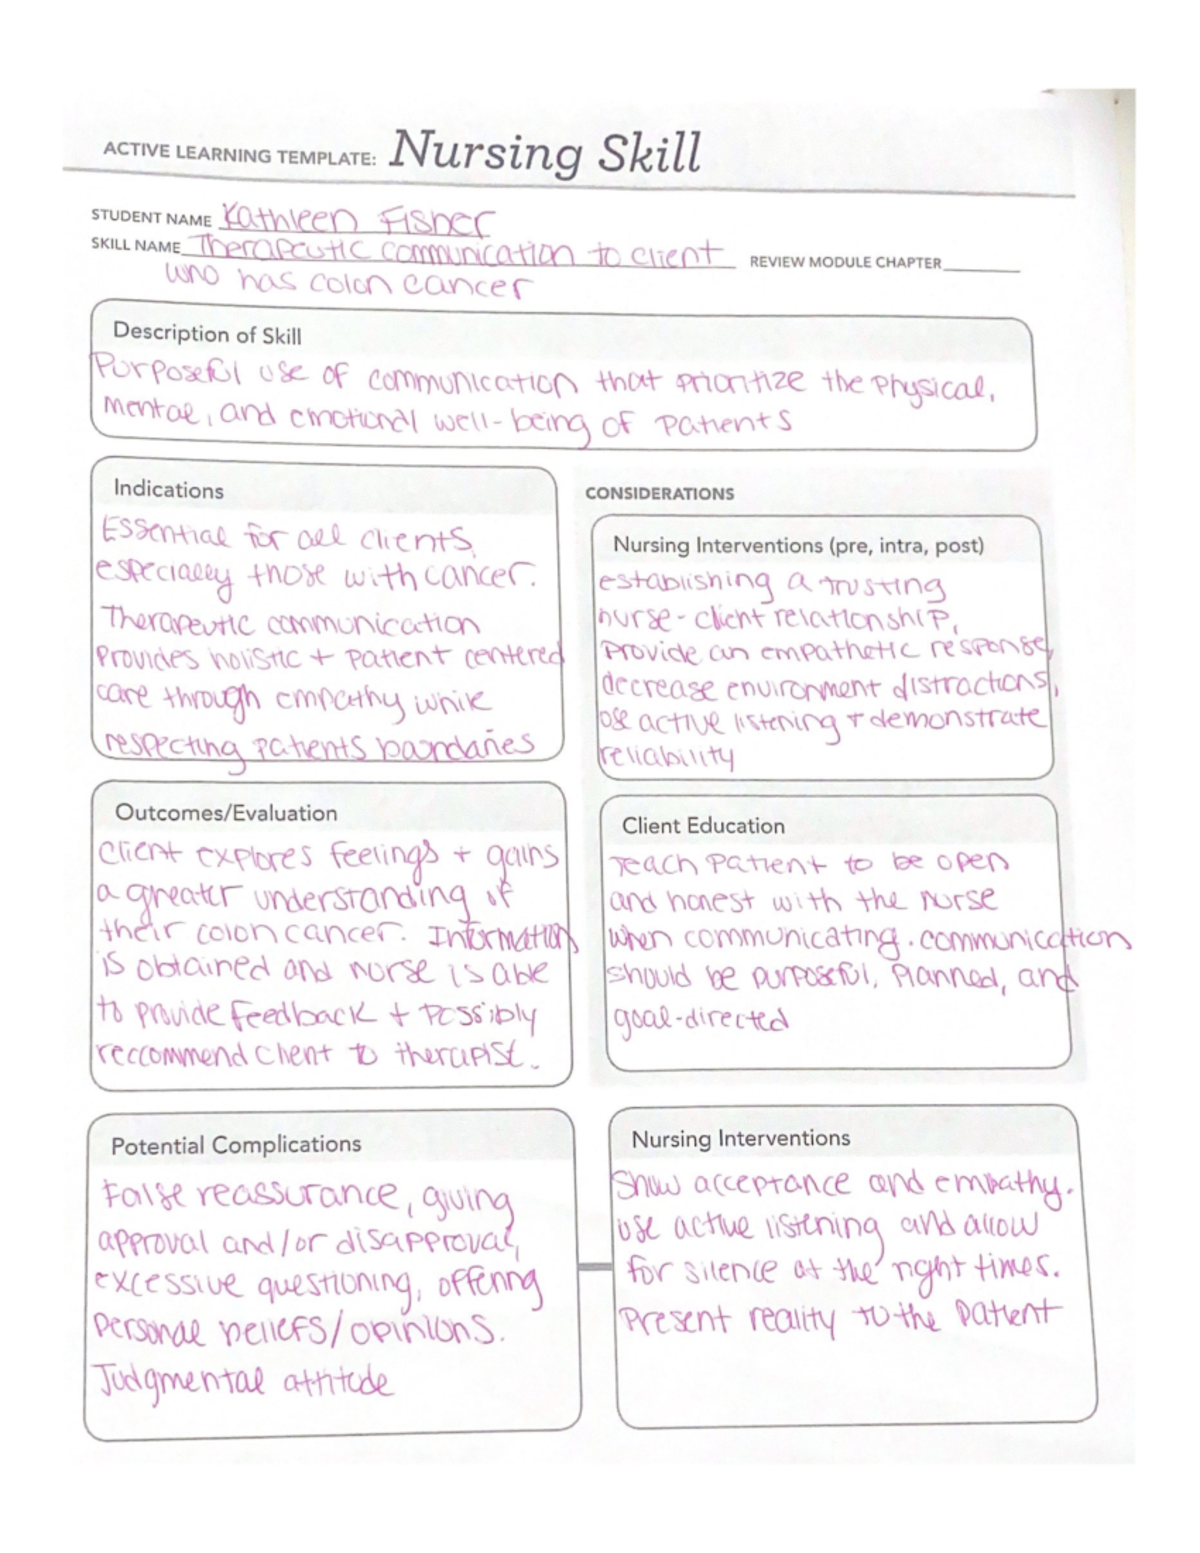 ACTIVE LEARNING TEMPLATE: Nursing Skill
STUDENT NAME Kathleen Fisher
SKILL NAME Therapeutic communication to client
REVIEW MODULE CHAPTER
who has colon cancer
Description of Skill
Purposeful use of communication that prioritize the physical,
mental, and emotional well-being of patients
Indications
Essential for all clients
especially those with cancer.
Therapeutic communication
Provides holistic + patient centered
care through empathy while
respecting patients boundaries
CONSIDERATIONS
Nursing Interventions (pre, intra, post)
establishing a trusting
nurse-client relationship,
provide an empathetic response,
decrease environment distractions,
use active listening + demonstrate
reliability
Outcomes/Evaluation
Client explores feelings + gains
a greater understanding of
their colon cancer. Information
is obtained and nurse is able
to provide feedback + possibly
reccommend client to therapist.
Client Education
Teach patient to be open
and honest with the nurse
when communicating. communication
should be purposeful, planned, and
goal-directed
Potential Complications
False reassurance, giving
approval and/or disapproval,
excessive questioning, offering
personal beliefs/opinions.
Judgmental attitude
Nursing Interventions
Show acceptance and empathy.
Use active listening and allow
for silence at the right times.
Present reality to the patient